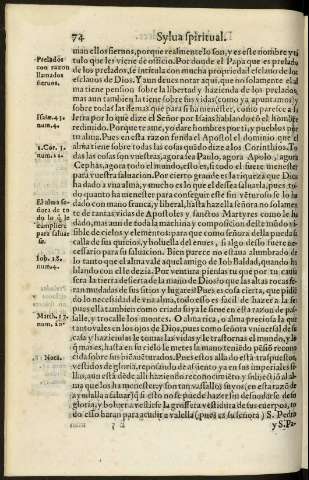 74
Sylua spiritual.
man ellos sieruos, porque realmente lo son, y es este nombre y ti
tulo que les viene de officio. Por donde el Papa que es prelado
de los prelados, se intitula con mucha propriedad esclauo de los
esclauos de Dios. Y aun deues notar aqui, que no solamente el al
ma tiene pension sobre la libertad y hazienda de los prelados,
mas aun tambien la tiene sobre sus vidas (como ya apuntamos) y
sobre todas las demas que para si ha menester, como parece a
letra por lo que dize el Señor por Isaias hablando cō el hombre
redimido. Porque te amè, yo dare hombres por ti, y pueblos por tu
alma. Pues en esta razon fenda el Apostol el dominio que el
alma tiene de todas las cosas quādo dize a los Corinthios. To
das las cosas son vuestras, agora sea Paulo, agora Apolo, agora
Cephas, agora todo el mundo, esto es, si todo el fuere menester
para vuestra saluacion. Por cierto grande es la riqueza que Dios
ha dado a vn alma, y mucho es lo que el dessea saluarla, pues to-
do quanto ha menester para conseguir este fin vltimo se le ha
dado con mano franca, y liberal, hasta hazella señora no solamen
te de tantas vidas de Apostoles y sanctos Martyres como le ha
dado, mas aun de toda la machina y composicion deste mūdo vi-
sible de cielos y elementos que como señora della puede sa
calla de sus quicios, y boluella del enues, si algo desso fuere ne-
cessario para su saluacion. Bien parece no estaua alumbrado de
lo tanto que el alma vale aquel amigo de Iob Baldad, quando ha
blando con el le dezia. Por ventura piensas tu que por tu causa
sera la tierra desierta de la mano de Dios? o que las altas rocas se-
ran mudadas de sus sitios y lugares? Pues es cosa cierta, que pidiē
do lo necessidad de vna alma, todo esso es facil de hazer a la fe
pues ella tambien como criada suya le sirue en esta razon de pas-
salle, y trocalle los montes. O alma rica, o alma preciosa la que
tanto vales en los ojos de Dios, pues como señora vniuersal de su
casa y hazienda se te dan las vidas y le trastornan el mundo, y lo
q̄ mas es, hasta en su cielo se meter la mano teniēdo pēsiō recono
cida sobre sus biēauēturados. Pues estos alla dō está traspuestos,
vestidos de gloria, reposando de assiento ya en sus imperiales si-
llas, aun està dēde alli haziendo reconocimiēto y subjectiō al al
ma que los ha menester (y son tan vassallos suyos) en esta razō de
ayudalla a saluar) q̄ si esto no se puede hazer sin desnudarse de su
gloria, y boluer a vestirse la grossera vestidura de sus cuerpos, to
do esso haran para acudir e valella (pues es su señora) S. Pedro
y S. Pa-
Prelados
con razon
llamados
sieruos.
Isaiæ. 43.
num. 4.
1. Cor. 3.
num. 22.
El alma se
ñora de to
do lo q̄ le
cumpliere
para saluar
se.
Iob. 18.
num. 4.
Matth. 17.
num. 20.
Nota.